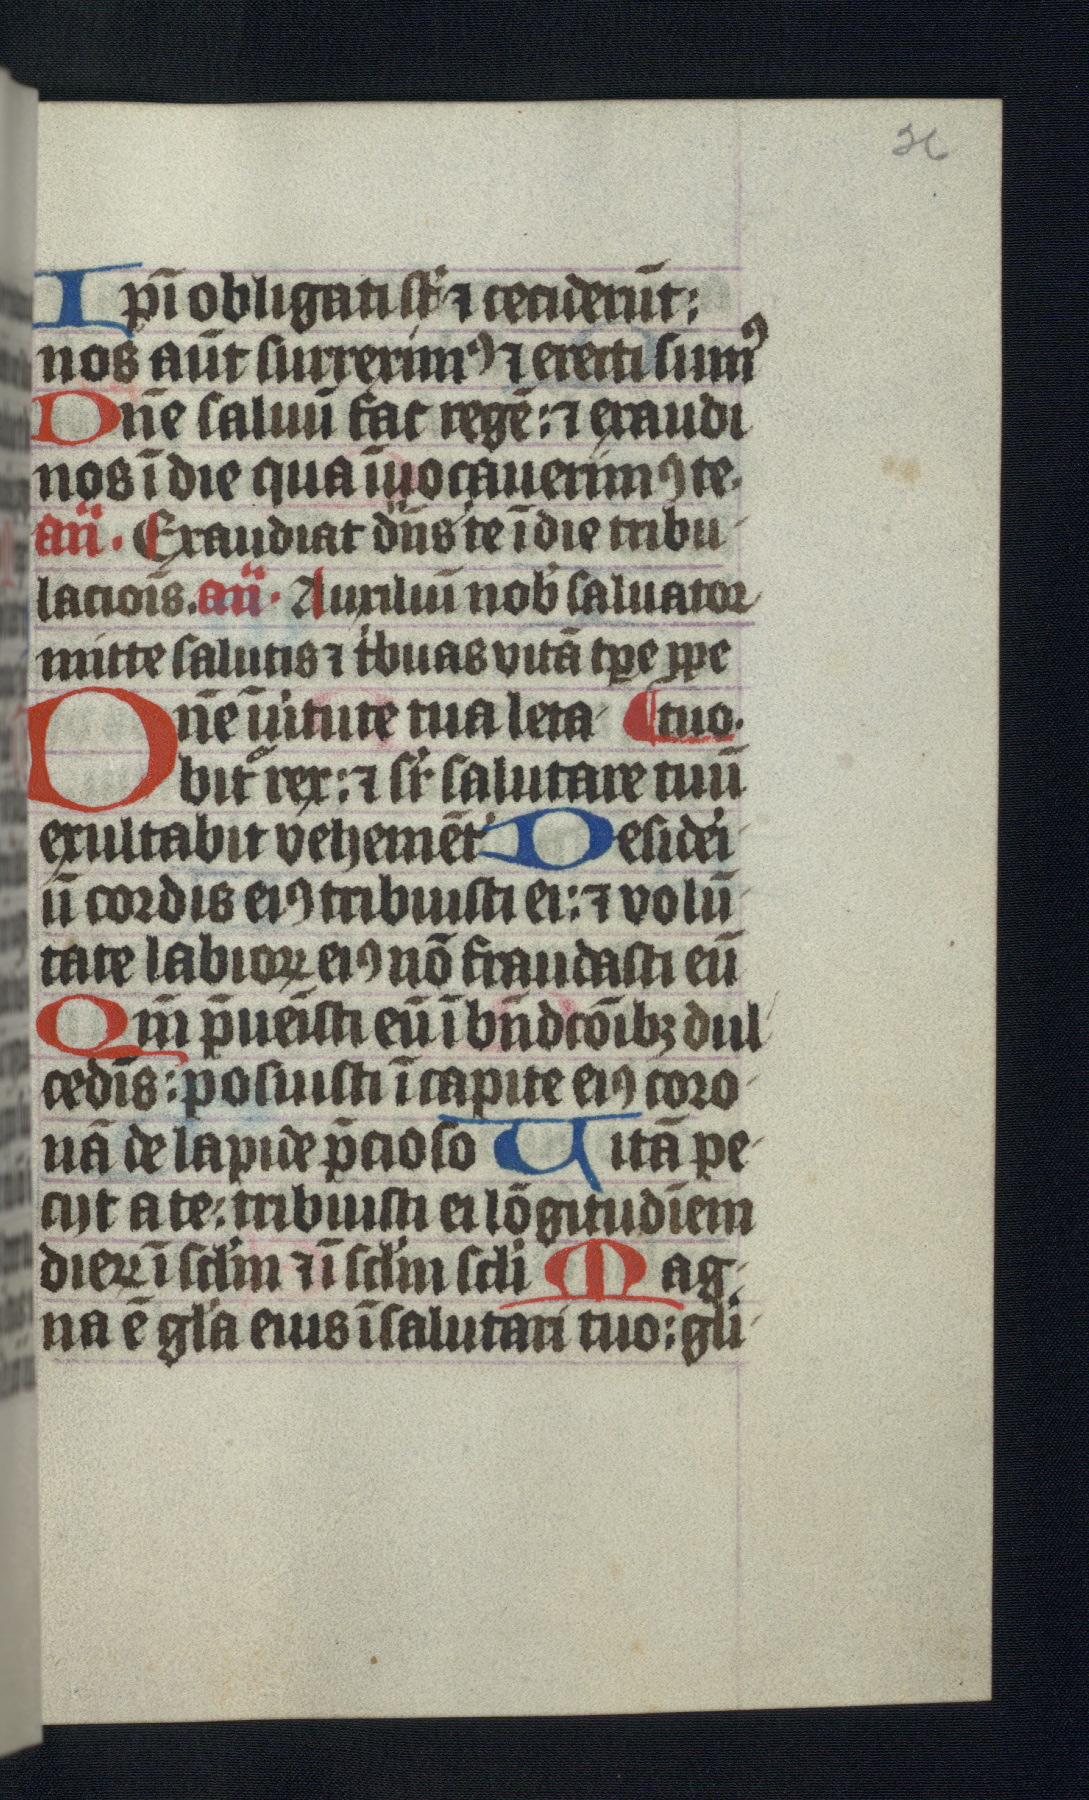 26
Ipi̅ obligati st̅ ⁊ cecideru̅t:
nos au̅t surreximꝰ ⁊ erecti sumꝰ
Dn̅e saluu̅ fac rege̅: ⁊ exaudi
nos i̅ die qua i̅uocauerimꝰ te.
an̅. Exaudiat dn̅s te i̅ die tribu
lacio̅is. an̅. Auxiliu̅ nob̅ saluator
mitte salutis ⁊ tͥbuas vita̅ tꝑe ꝑpe
Dn̅e i̅ uͥtute tua leta ¶tuo.
bitᷣ rex: ⁊ sꝛ̅ salutare tuu̅
exultabit vehemẽt͛ Desideͥ
u̅ cordis eiꝰ tribuisti ei: ⁊ volu̅
tate labioꝝ eiꝰ no̅ fraudasti eu̅
Qm̅ p̅uei̅sti eu̅ i̅ bn̅dco̅ibꝫ dul
cedi̅s: posuisti i̅ capite eiꝰ coro
na̅ de lapide p̅cioso Uita̅ pe
cijt a te: tribuisti ei lo̅gitudi̅em
dieꝝ i̅ scl̅m ⁊ i̅ scl̅m scl̅i Mag
na e̅ gl̅a eius i̅ salutari tuo: gl̅i